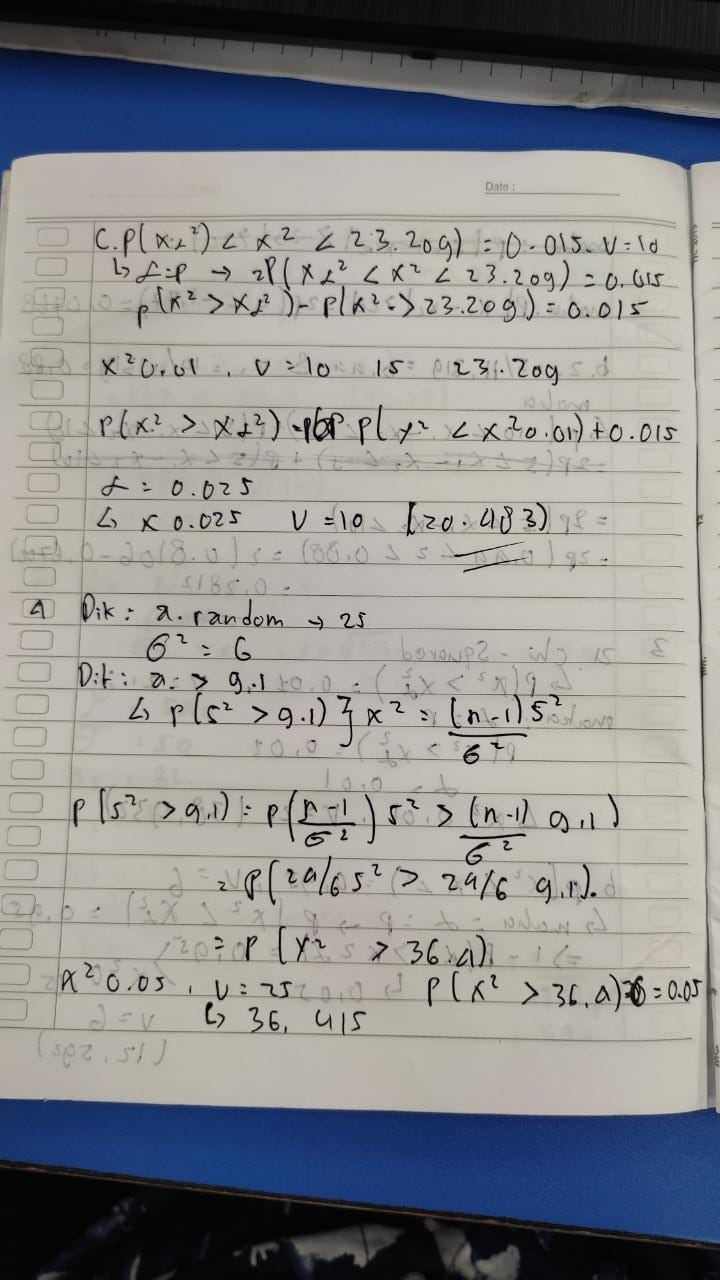 Date :
C. P(x𝛼²) < x² < 23.209) = 0.015. V=10
↳ 𝛼=p → P(x𝛼² < x² < 23.209) = 0.015
p(x² > x𝛼²) - p(x² > 23.209) = 0.015
x² 0.01 , V = 10 15 = 23.209
P(x² > x𝛼²) = P(x² < x² 0.01) + 0.015
𝛼 = 0.025
↳ x 0.025 V = 10 [20.483)
4 Dik: a. random → 25
6² = 6
Dit: a. > 9.1
↳ P(s² > 9.1) } x² = (n-1) s² / 6²
P(s² > 9,1) = P(n-1 / 6²) s² > (n-1) 9,1) / 6²
= P(24/6 s² > 24/6 9,1).
= P (x² > 36.4)
x² 0.05 , V = 25 P(x² > 36,4) = 0.05
↳ 36, 415